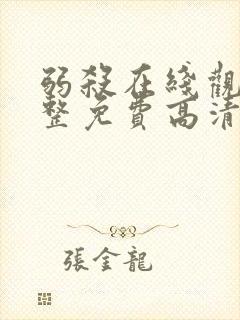 弱殺在綫觀
整免費高清
張金龍